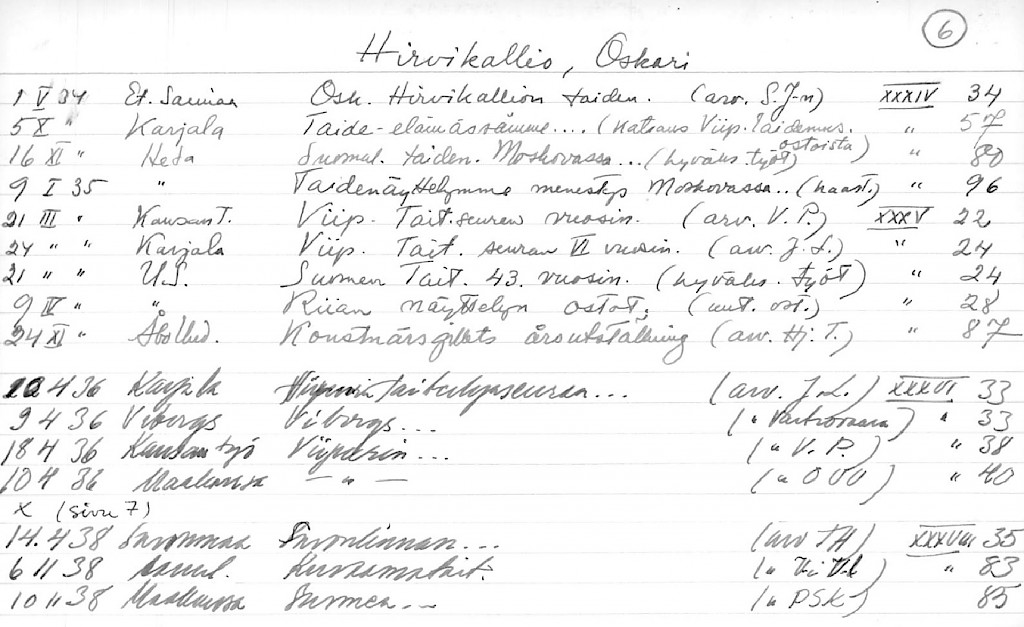 6
Hirvikallio, Oskari
1 V 34 Et. Saimaa Osk. Hirvikallion taiden. (arv. S. J-n) XXXIV 34
5 X " Karjala Taide-elämässämme.... (katsaus Viip. taidemus. ostoista) " 57
16 XI " Heta Suomal. taiden. Moskovassa... (hyväks. työt) " 80
9 I 35 " Taidenäyttelymme menestys Moskovassa.. (haast.) " 96
21 III " Kansan T. Viip. Tait. seuran vuosin. (arv. V. P.) XXXV 22
24 " " Karjala Viip. Tait. seuran VI vuosin. (arv. J. L.) " 24
21 " " U.S. Suomen Tait. 43. vuosin. (hyväks. työt) " 24
9 IV " " Riian näyttelyn ostot. (ost.) " 28
24 XI " Åbo Und. Konstnärsgillets årsutställning (arv. Hj. T.) " 87
10 4 36 Karjala Viipurin taiteilijaseuran... (arv. J. L.) XXXVI 33
9 4 36 Viborgs Viborgs... (" ) " 33
18 4 36 Kansan työ Viipurin... (" V. P.) " 38
10 4 36 Maakansa — " — (" OVV) " 40
x (sivu 7)
14. 4 38 Savonmaa Savonlinnan... (arv TH) XXXVIII 35
6 11 38 " 83
10 11 38 Maakansa Suomen... (" PSK) 85